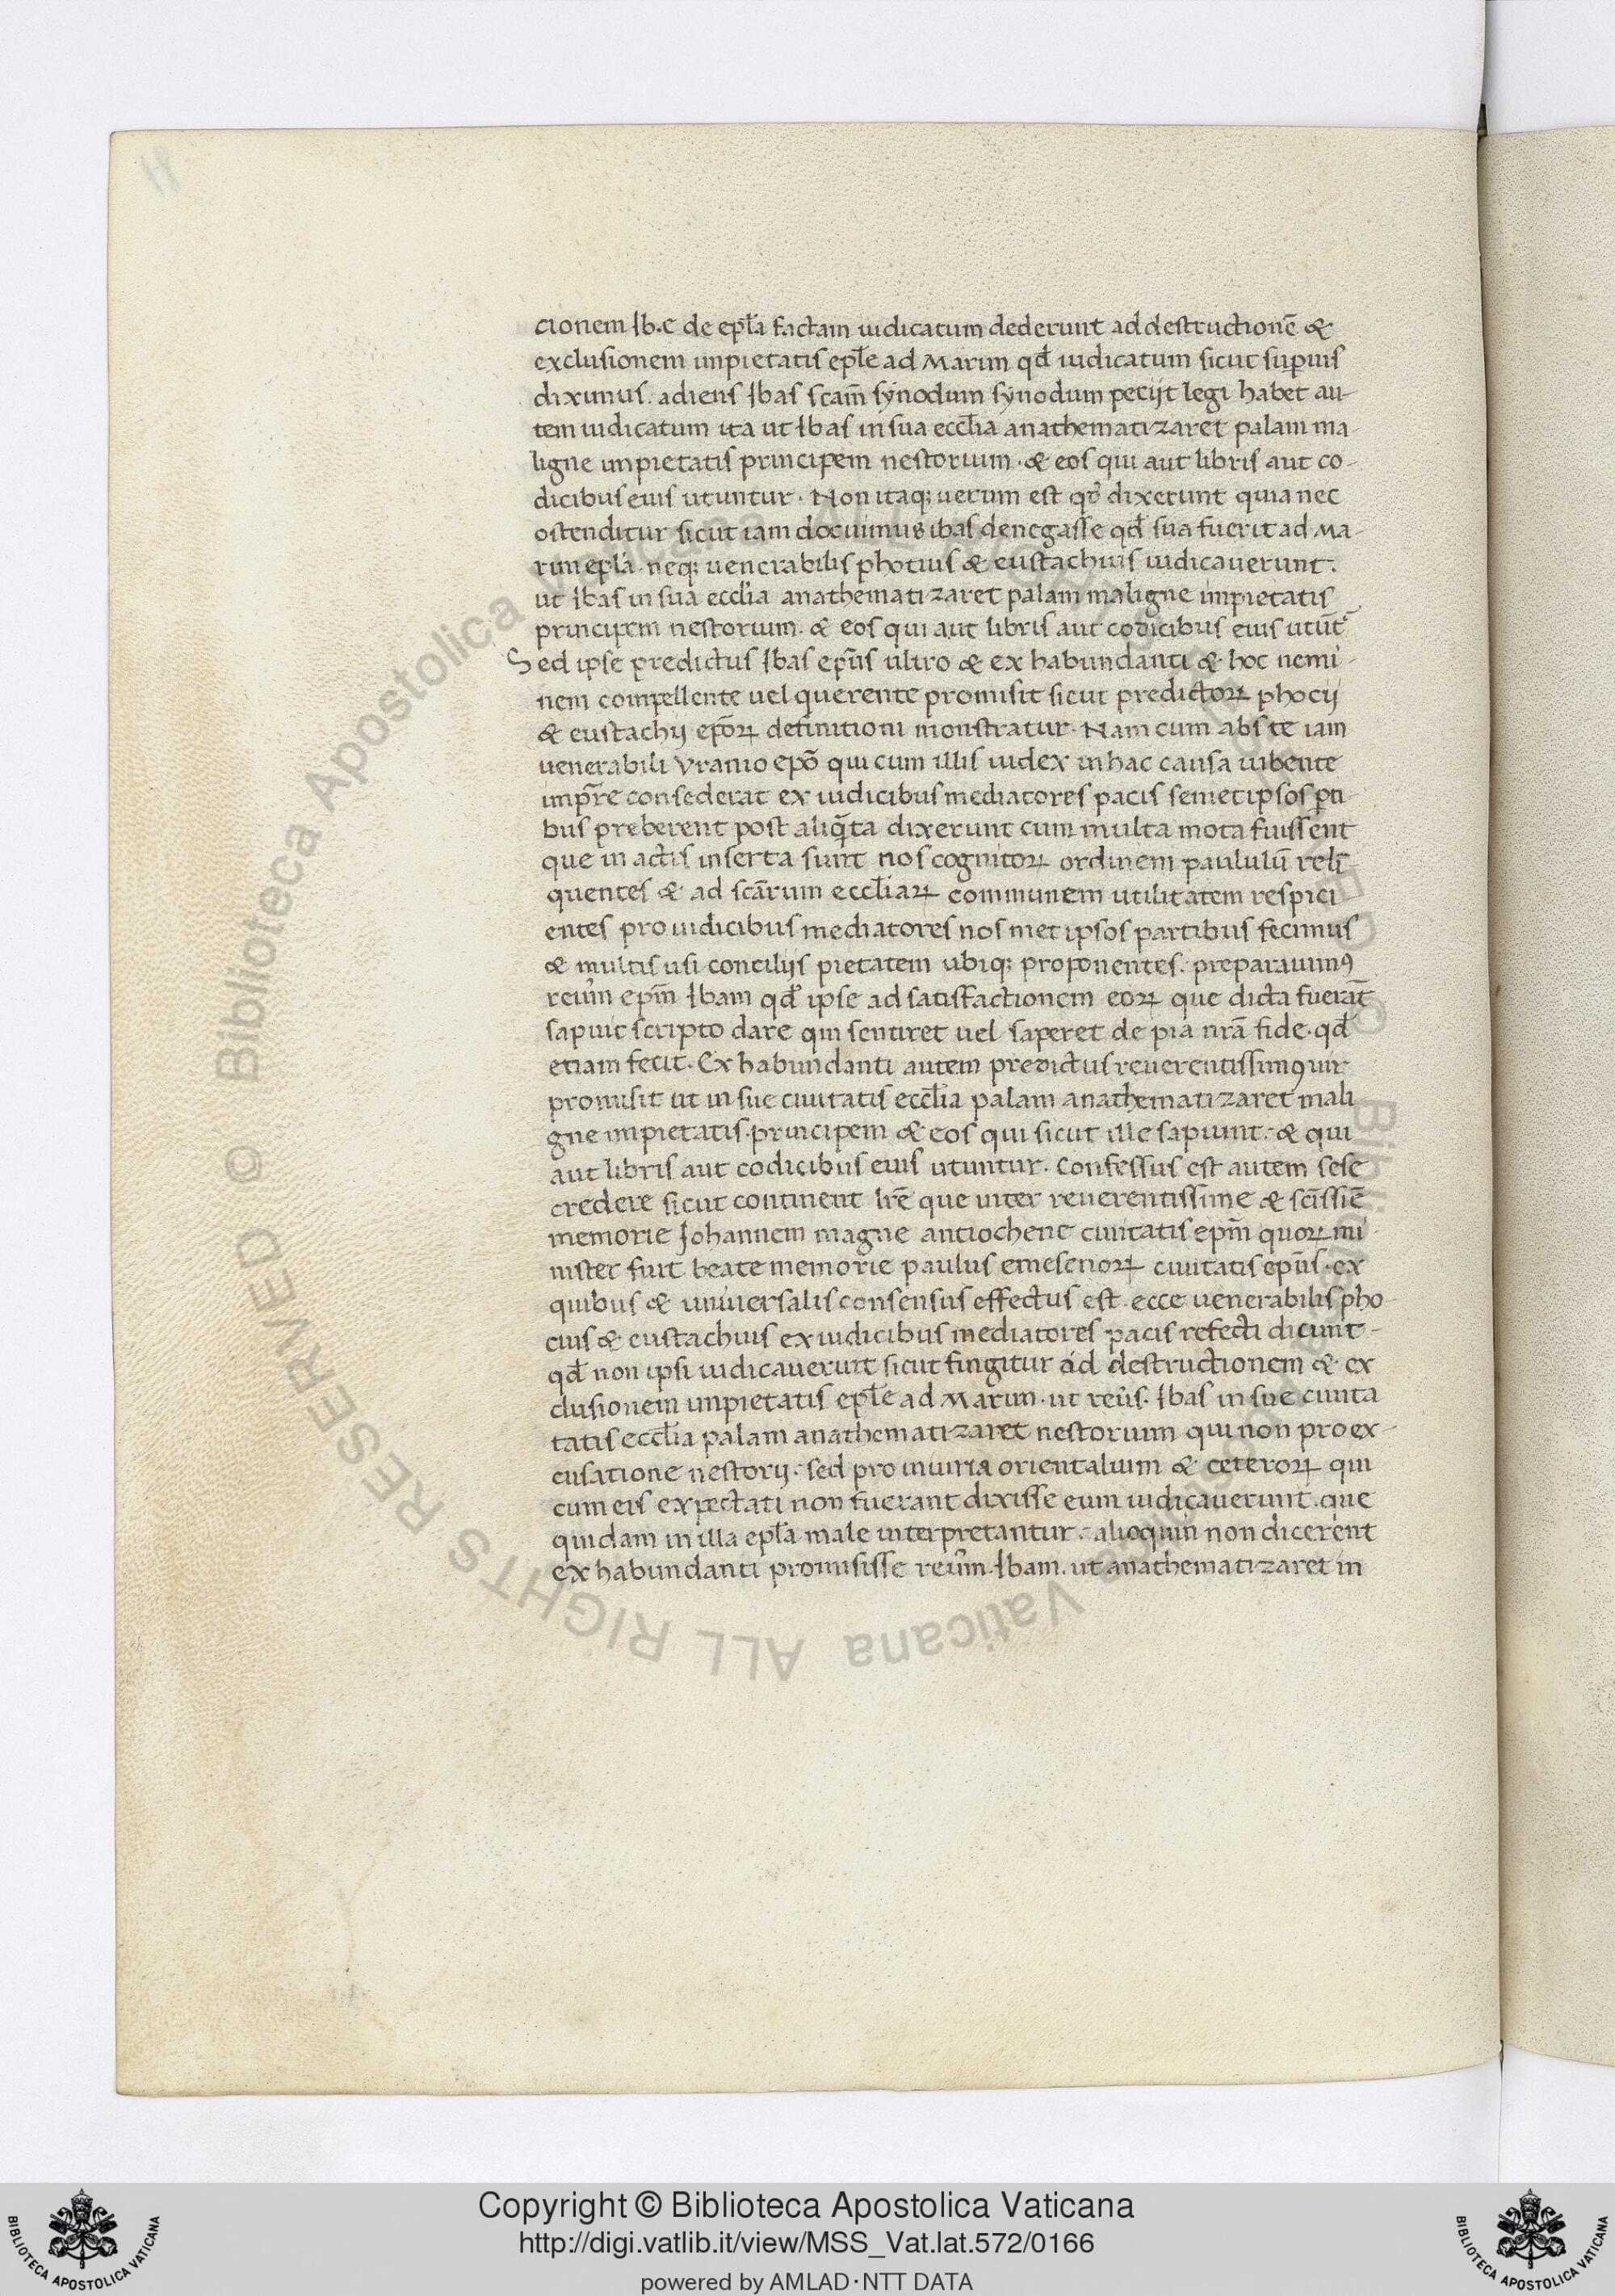 cionem Ib.e de epl̄a factam iudicatum dederunt ad destructionē &
exclusionem impietatis epl̄e ad Marim qd̄ iudicatum sicut superius
diximus. adiens Ibas scam̄ synodum synodum petijt legi habet au-
tem iudicatum ita ut Ibas in sua eccl̄ia anathematizaret palam ma-
ligne impietatis principem nestorium. & eos qui aut libris aut co-
dicibus eius utuntur. Non itaq; uerum est qd̄ dixerunt quia nec
ostenditur sicut iam docuimus ibas denegasse qd̄ sua fuerit ad Ma-
rim epl̄a. neq; uenerabilis photius & eustachius iudicauerunt.
ut Ibas in sua eccl̄ia anathematizaret palam maligne impietatis
principem nestorium. & eos qui aut libris aut codicibus eius utūt̄
Sed ipse predictus Ibas ep̄us ultro & ex habundanti & hoc nemi-
nem compellente uel querente promisit sicut predictoꝝ phocij
& eustachij ep̄oꝝ definitioni monstratur. Nam cum abs te iam
uenerabili Vranio epō qui cum illis iudex in hac causa iubente
imp̄re consederat ex iudicibus mediatores pacis semetipsos ꝑti-
bus preberent post aliq̄ta dixerunt cum multa mota fuissent
que in actis inserta sunt nos cognitoꝝ ordinem paululū reli-
quentes & ad scārum eccl̄iaꝝ communem utilitatem respici-
entes pro iudicibus mediatores nos met ipsos partibus fecimus
& multis usi concilijs pietatem ubiq; proponentes. preparauimꝯ
reum̄ epm̄ Ibam qd̄ ipse ad satisfactionem eoꝝ que dicta fuerāt
sapuit scripto dare qui sentiret uel saperet de pia nrā fide. qd̄
etiam fecit. Ex habundanti autem predictus reuerentissimꝯ uir
promisit ut in sue ciuitatis eccl̄ia palam anathematizaret mali
gne impietatis principem & eos qui sicut ille sapiunt. & qui
aut libris aut codicibus eius utuntur. Confessus est autem sese
credere sicut continent lrē que inter reuerentissime & scissiē
memorie Johannem magne antiochene ciuitatis epm̄ quoꝝ mi-
nister fuit beate memorie paulus emesenoꝝ ciuitatis ep̄us. ex
quibus & uniuersalis consensus effectus est. ecce uenerabilis pho-
cius & eustachius ex iudicibus mediatores pacis refecti dicunt-
qd̄ non ipsi iudicauerunt sicut fingitur ad destructionem & ex
clusionem impietatis epl̄e ad Marim. ut reus̄. Ibas in sue ciuita
tatis eccl̄ia palam anathematizaret nestorium qui non pro ex-
cusatione nestorij. sed pro iniuria orientalium & ceteroꝝ qui
cum eis expectati non fuerant dixisse eum iudicauerunt. que
quidam in illa epl̄a male interpretantur. alioquin non dicerent
ex habundanti promisisse reum̄. Ibam. ut anathematizaret in
© Biblioteca Apostolica Vaticana ALL RIGHTS RESERVED
Copyright © Biblioteca Apostolica Vaticana
http://digi.vatlib.it/view/MSS_Vat.lat.572/0166
powered by AMLAD·NTT DATA
BIBLIOTECA APOSTOLICA VATICANA
BIBLIOTECA APOSTOLICA VATICANA